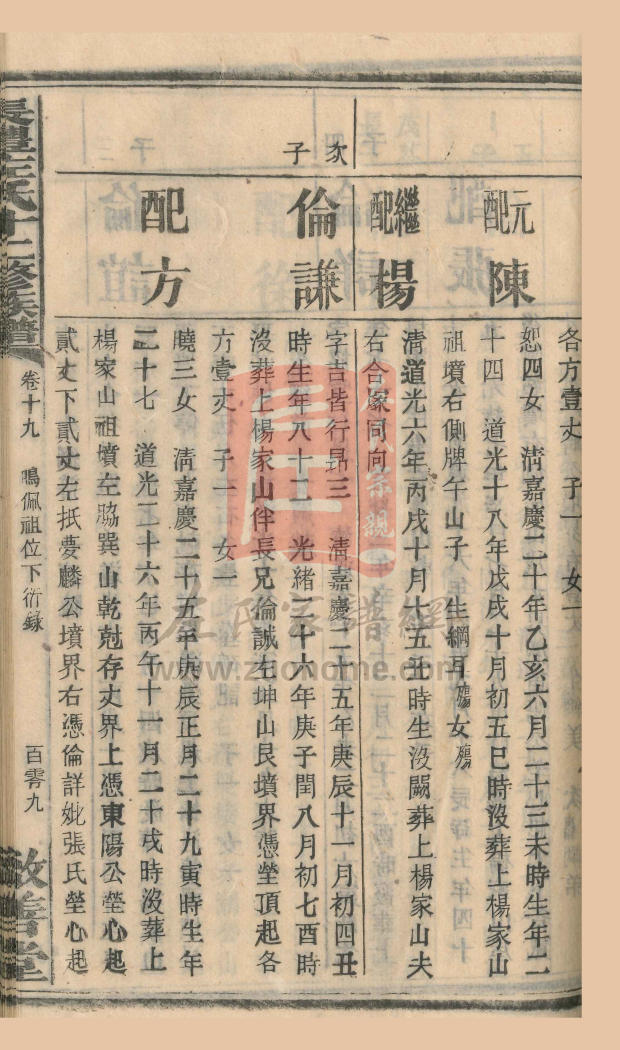 各方壹丈 子一 女一
元配 陳
恕四女 淸嘉慶二十年乙亥六月二十三未時生年二
十四 道光十八年戊戌十月初五巳時沒葬上楊家山
祖墳右側牌午山子 生綱耳殤女殤
繼配 楊
淸道光六年丙戌十月十五丑時生沒闕葬上楊家山夫
右合冢同向
次子
倫謙
字吉皆行昂三 淸嘉慶二十五年庚辰十一月初四丑
時生年八十二 光緒二十六年庚子閏八月初七酉時
沒葬上楊家山伴長兄倫誠左坤山艮墳界憑塋頂起各
方壹丈 子一 女一
配 方
曉三女 淸嘉慶二十五年庚辰正月二十九寅時生年
二十七 道光二十六年丙午十一月二十戌時沒葬上
楊家山祖墳左脇巽山乾尅存丈界上憑東陽公塋心起
貳丈下貳丈左抵夢麟公墳界右憑倫詳妣張氏塋心起
長豐左氏十二修族譜
卷十九 鳴佩祖位下衍錄
百零九
敦善堂
左氏家譜網
www.zuohome.com